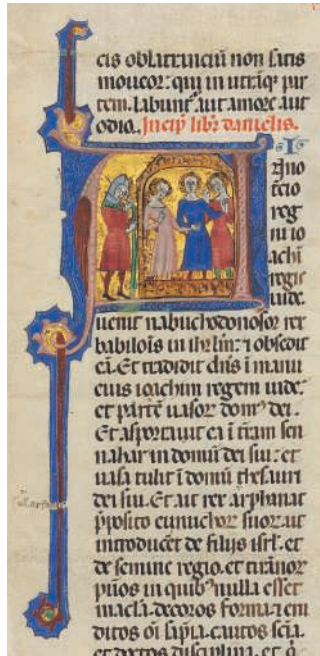 cis oblatranciū non satis
moueor: qui in utrāq; par
tem. labunt̄ aut amore aut
odio. Incip̄ libr̄ danielis.
A Nno
tercio
reg
ni io
achi
regis
iude.
uenit nabuchodonosor rex
babilōis in ihr̄lm̄: ⁊ obsedit
eā. Et tradidit dn̄s ī manu
eius ioachim regem iude:
et partē uasoꝝ domꝰ dei.
Et asportauit ea ī t̄ram sen
nahar in domū dei sui: et
uasa tulit ī domū thesauri
dei sui. Et ait rex asphanaz
p̄posito eunuchoꝝ suoꝝ: ut
introduceret de filijs isrl̄. et
de semine regio. et tirānoꝝ
pūos in quibꝰ nulla esset
macla. decoros forma. ⁊ eru
ditos oī sapīa. cautos scīa.
et doctos disciplina. et q̄